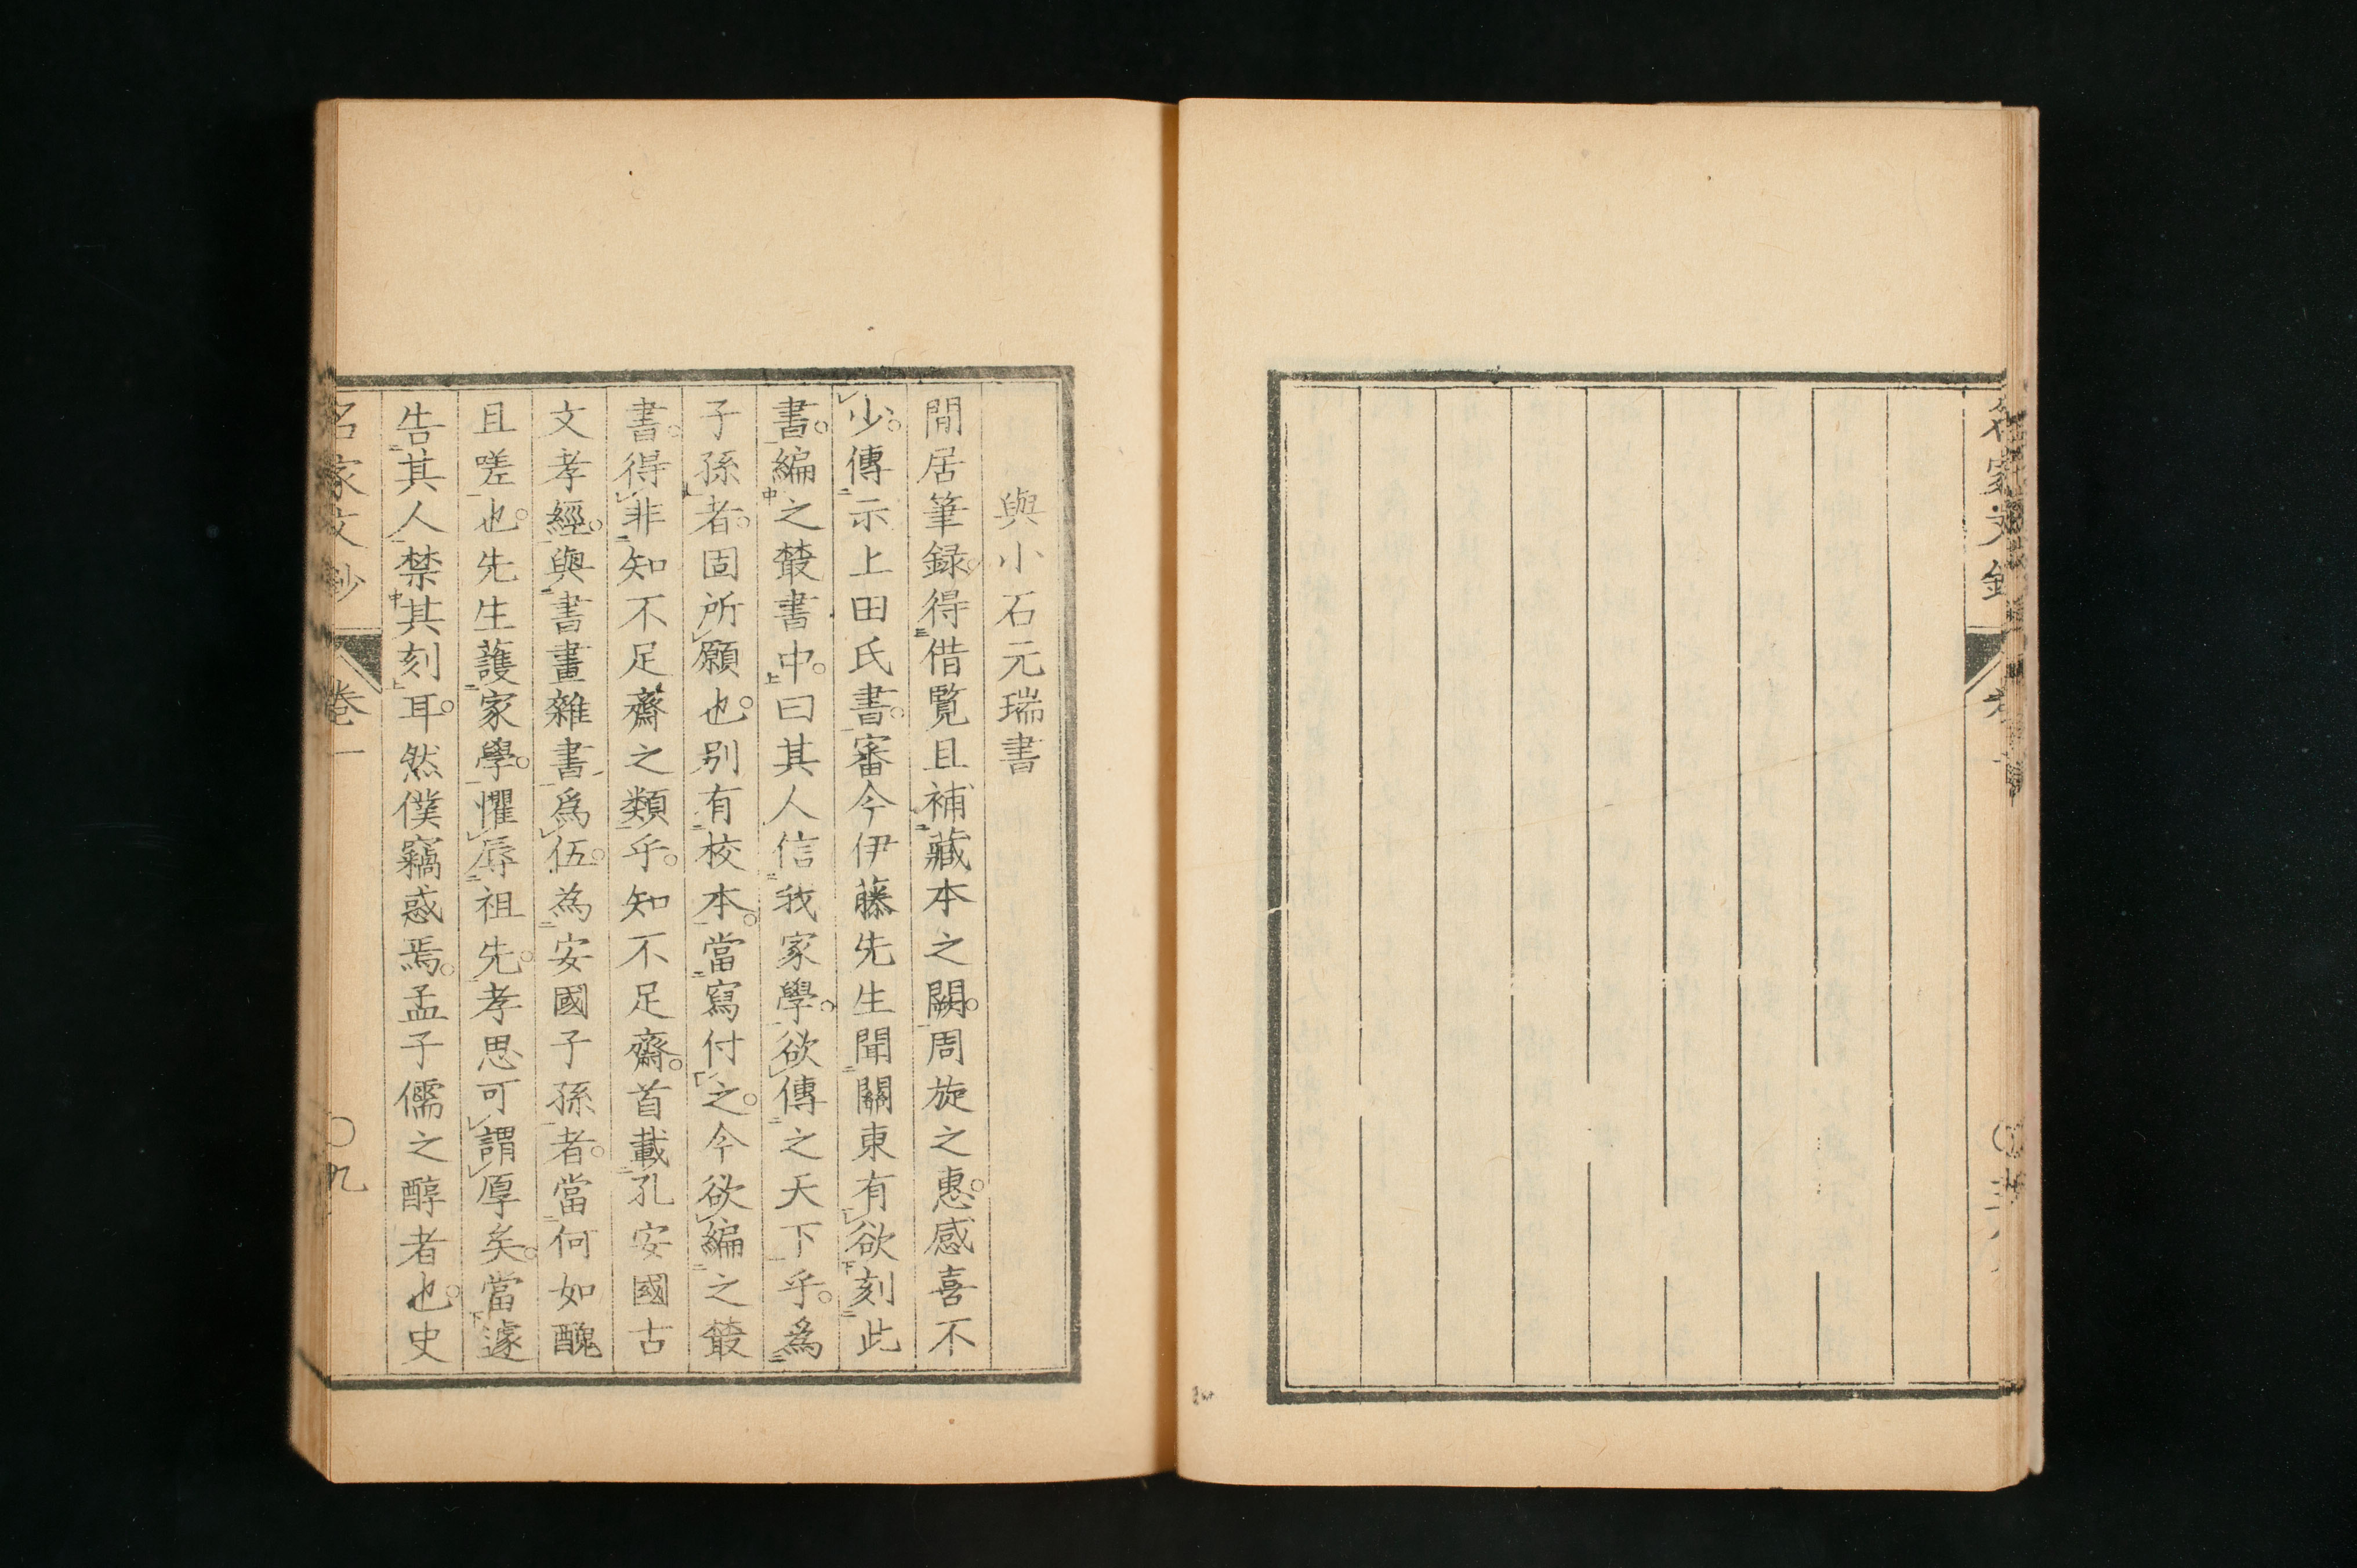 與小石元瑞書
閒居筆錄。得借覽且補藏本之闕。周旋之惠。感喜不
少。傳示上田氏書。審今伊藤先生聞關東有欲刻此
書。編之叢書中。曰其人信我家學。欲傳之天下乎。爲
子孫者。固所願也。別有校本。當寫付之。今欲編之叢
書。得非知不足齋之類乎。知不足齋。首載孔安國古
文孝經。與書畫雜書爲伍。為安國子孫者。當何如醜
且嗟也。先生護家學。懼辱祖先。孝思可謂厚矣。當遽
告其人禁其刻耳。然僕竊惑焉。孟子儒之醇者也。史
名家文鈔 卷一 〇九